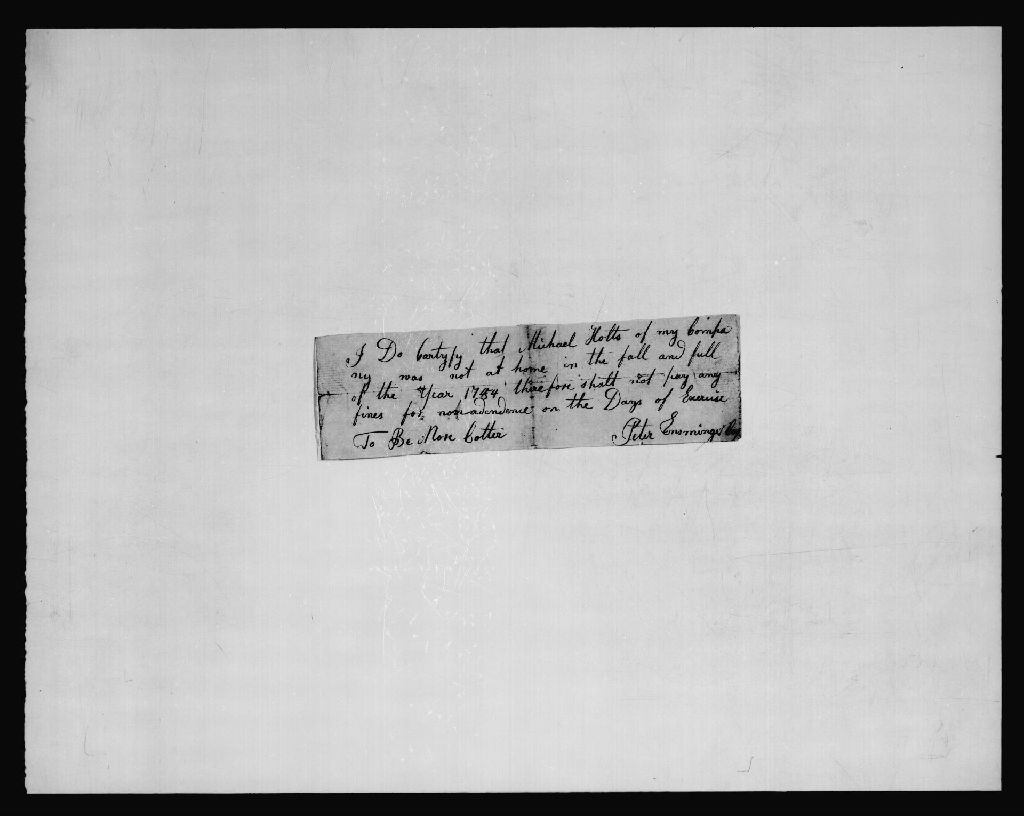 I Do Cartyfy that Michael Holts of my Compa
ny was not at home in the fall and full
of the Year 1784 therefore shall not pay any
fines for nonadendence on the Days of Exercise
To Be Non Cotter Peter Ensminger